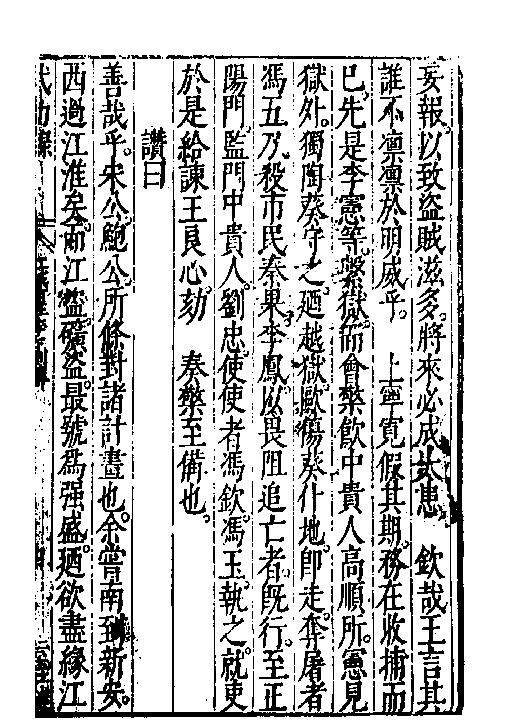 妄報以致盜賊滋多。將來必成大患　欽哉王言其
誰不凛凛於明威乎。　上寧寬假其期。務在收捕而
已。先是李憲等繫獄。而會禁飲中貴人高順所。憲見
獄外。獨陶葵守之。廼越獄毆傷葵什地。即走。奪屠者
馮五刀。殺市民秦果。李鳳。以畏阻追亡者。既行。至正
陽門。監門中貴人。劉忠。使使者馮欽。馮玉。執之。就吏
於是給諫王良心。劾　奏禁至備也。
讚曰
善哉乎。宋公鮑公。所條對諸計畫也。余嘗南到新安。
西過江淮矣。而江盜礦盜。最號爲强盛。廼欲盡緣江